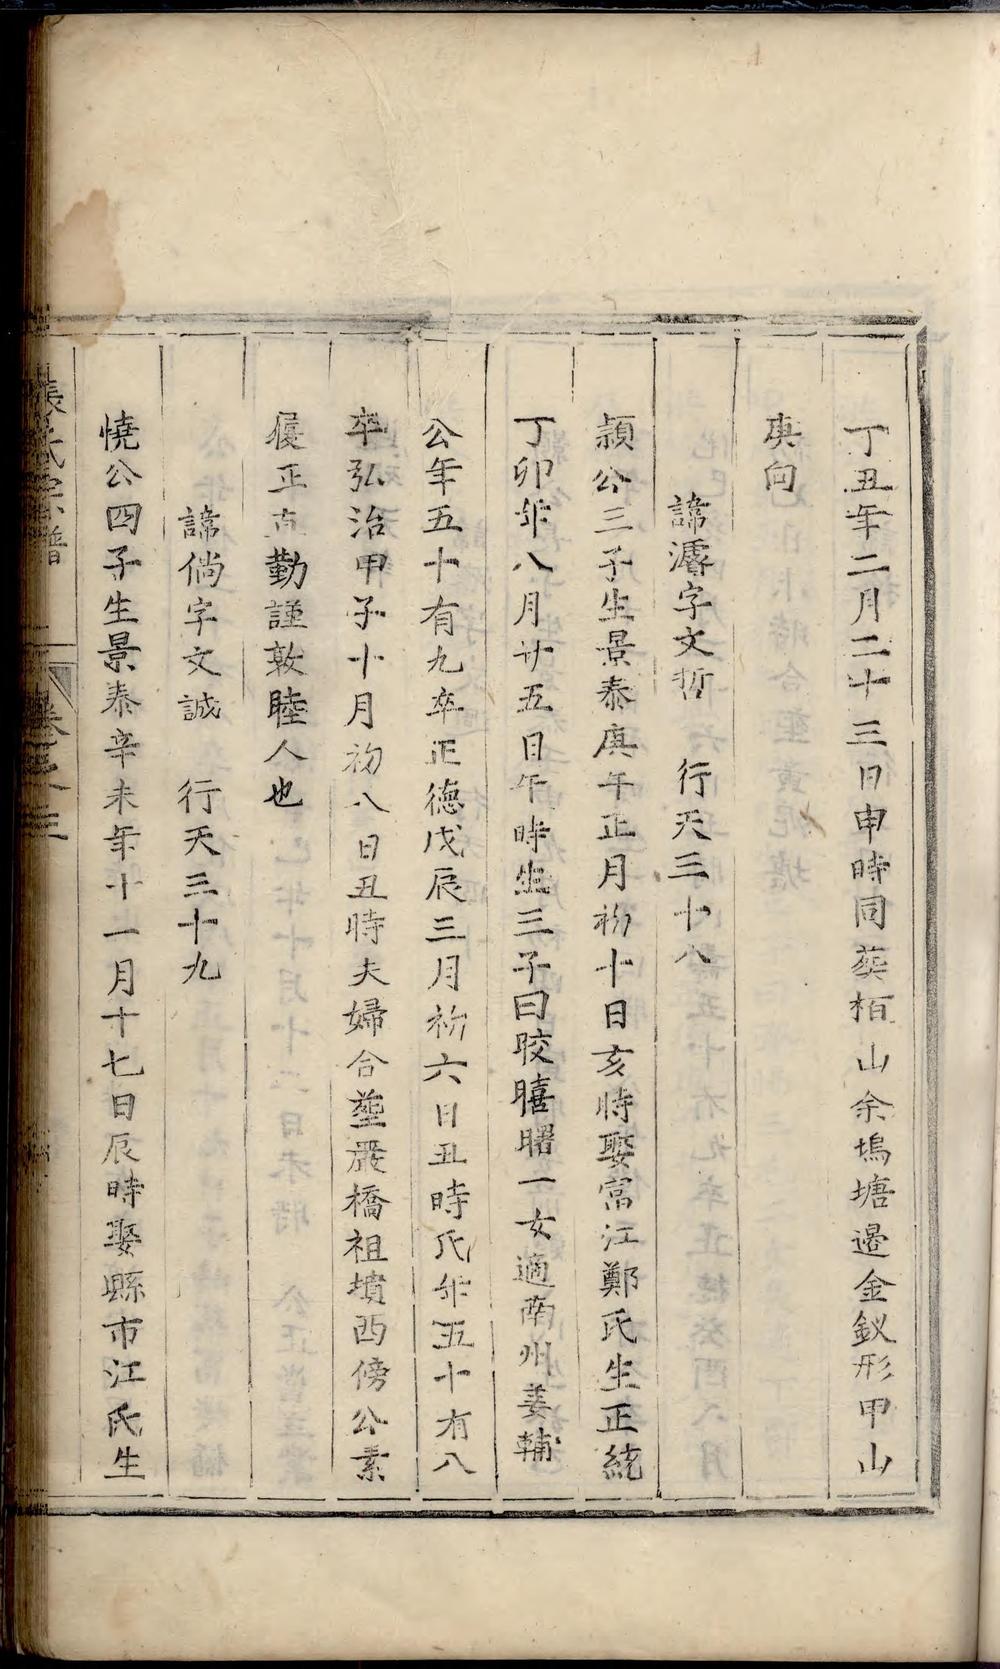 丁丑年二月二十三日申時同葬栢山余塢塘邉金釵形甲山
庚向
諱濬字文哲 行天三十八
頴公三子生景泰庚午正月初十日亥時娶富江鄭氏生正統
丁卯年八月廿五日午時生三子曰晈暿曙一女適南州姜輔
公年五十有九卒正德戊辰三月初六日丑時氏年五十有八
卒弘治甲子十月初八日丑時夫婦合塟嚴橋祖墳西傍公素
履正直勤謹敦睦人也
諱倘字文誠 行天三十九
憢公四子生景泰辛未年十一月十七日辰時娶縣市江氏生
張氏宗譜 卷之三